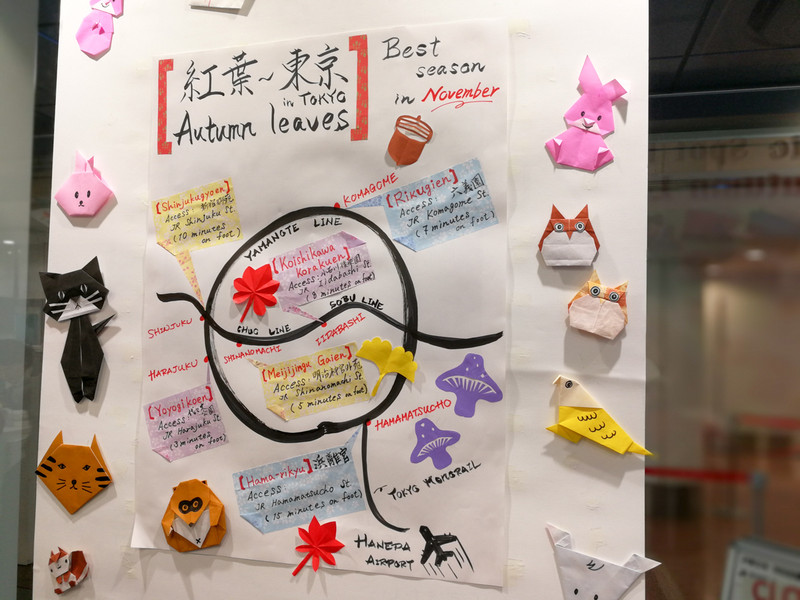 紅葉~東京
in TOKYO
Autumn leaves
Best
season
in November
KOMAGOME
[Shinjukugyoen]
Access: 新宿御苑
JR Shinjuku St
(10 minutes
on foot)
[Rikugien]
Access: 六義園
JR Komagome St.
(7 minutes
on foot)
YAMANOTE LINE
[Koishikawa
Korakuen]
Access: 小石川後楽園
JR Iidabashi St
(8 minutes on foot)
SOBU LINE
SHINJUKU
CHUO LINE
IIDABASHI
SHINANOMACHI
HARAJUKU
[Meijijingu Gaien]
Access: 明治神宮外苑
JR Shinanomachi St
(5 minutes on foot)
[Yoyogikoen]
Access: 代々木公園
JR Harajuku St
(3 minutes
on foot)
HAMAMATSUCHO
[Hama-rikyu] 浜離宮
Access:
JR Hamamatsucho St
(15 minutes on foot)
TOKYO MONORAIL
HANEDA
AIRPORT